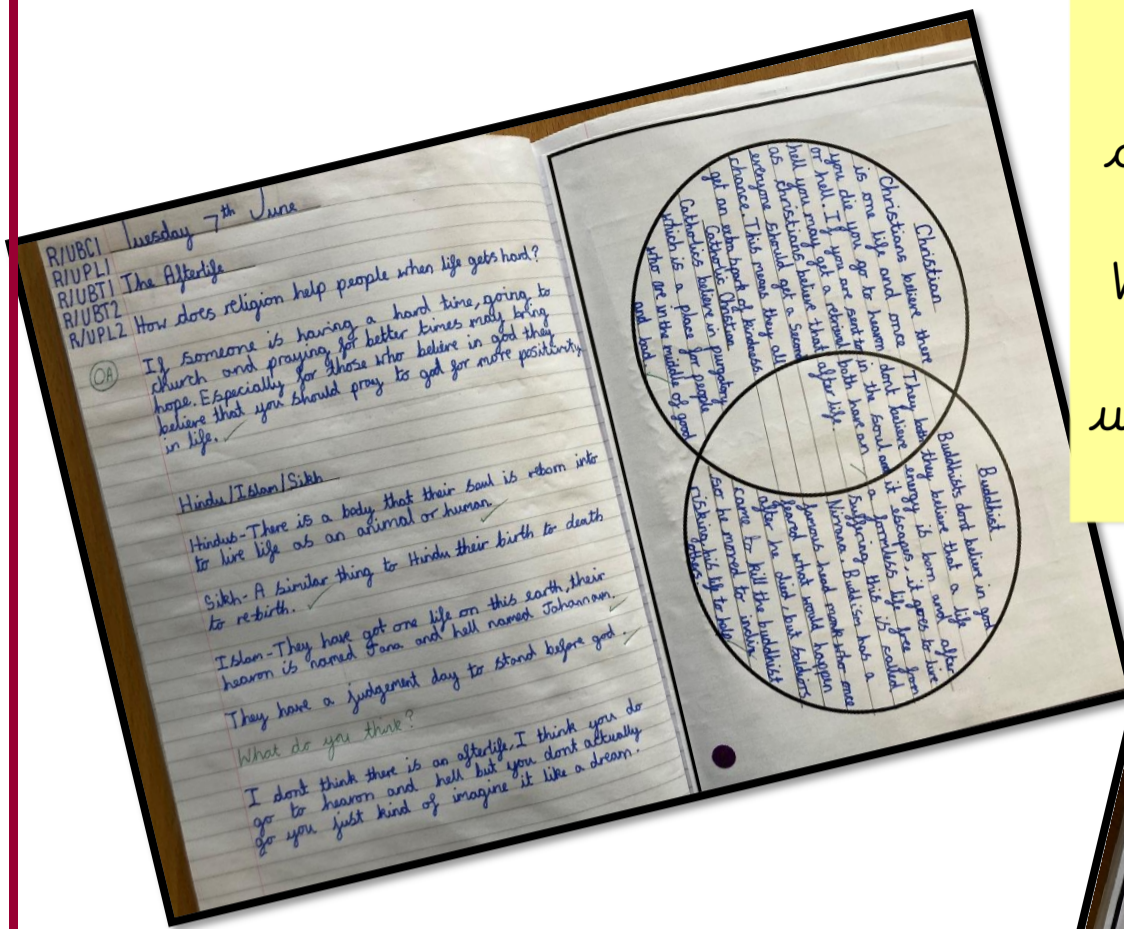 R/UBC1
R/UPL1
R/UBT1
R/UBT2
R/UPL2
Tuesday 7th June
The Afterlife
How does religion help people when life gets hard?
OA
If someone is having a hard time, going to
church and praying for better times may bring
hope. Especially for those who believe in god they
believe that you should pray to god for more positivity
in life.
Hindu/Islam/Sikh
Hindus-There is a body that their soul is reborn into
to live life as an animal or human.
Sikh- A similar thing to Hindu their birth to death
to re-birth.
Islam-They have got one life on this earth, their
heaven is named Jana and hell named Jahanam.
They have a judgement day to stand before god.
What do you think?
I dont think there is an afterlife. I think you do
go to heaven and hell but you dont actually
go you just kind of imagine it like a dream.
Christian
Christians believe there
is one life and once
you die you go to heaven
or hell. If you are sent to
hell you may get a retrieval
as christians believe that
everyone should get a second
chance. This means they all
get an extra bort of kindness.
Catholic Christian
Catholics believe in purgatory
which is a place for people
who are in the middle of good
and bad.
They both
dont believe
in the soul
both have an
after life.
Buddhist
Buddhists dont believe in god
they believe that a life
energy is born and after
it escapes, it goes to live
a formless life free from
suffering this is called
Nirvana. Buddism has a
famous head monk who once
feared what would happen
after he died, but soldiers
came to kill the buddhist
so he moved to india
risking his life to help
others.